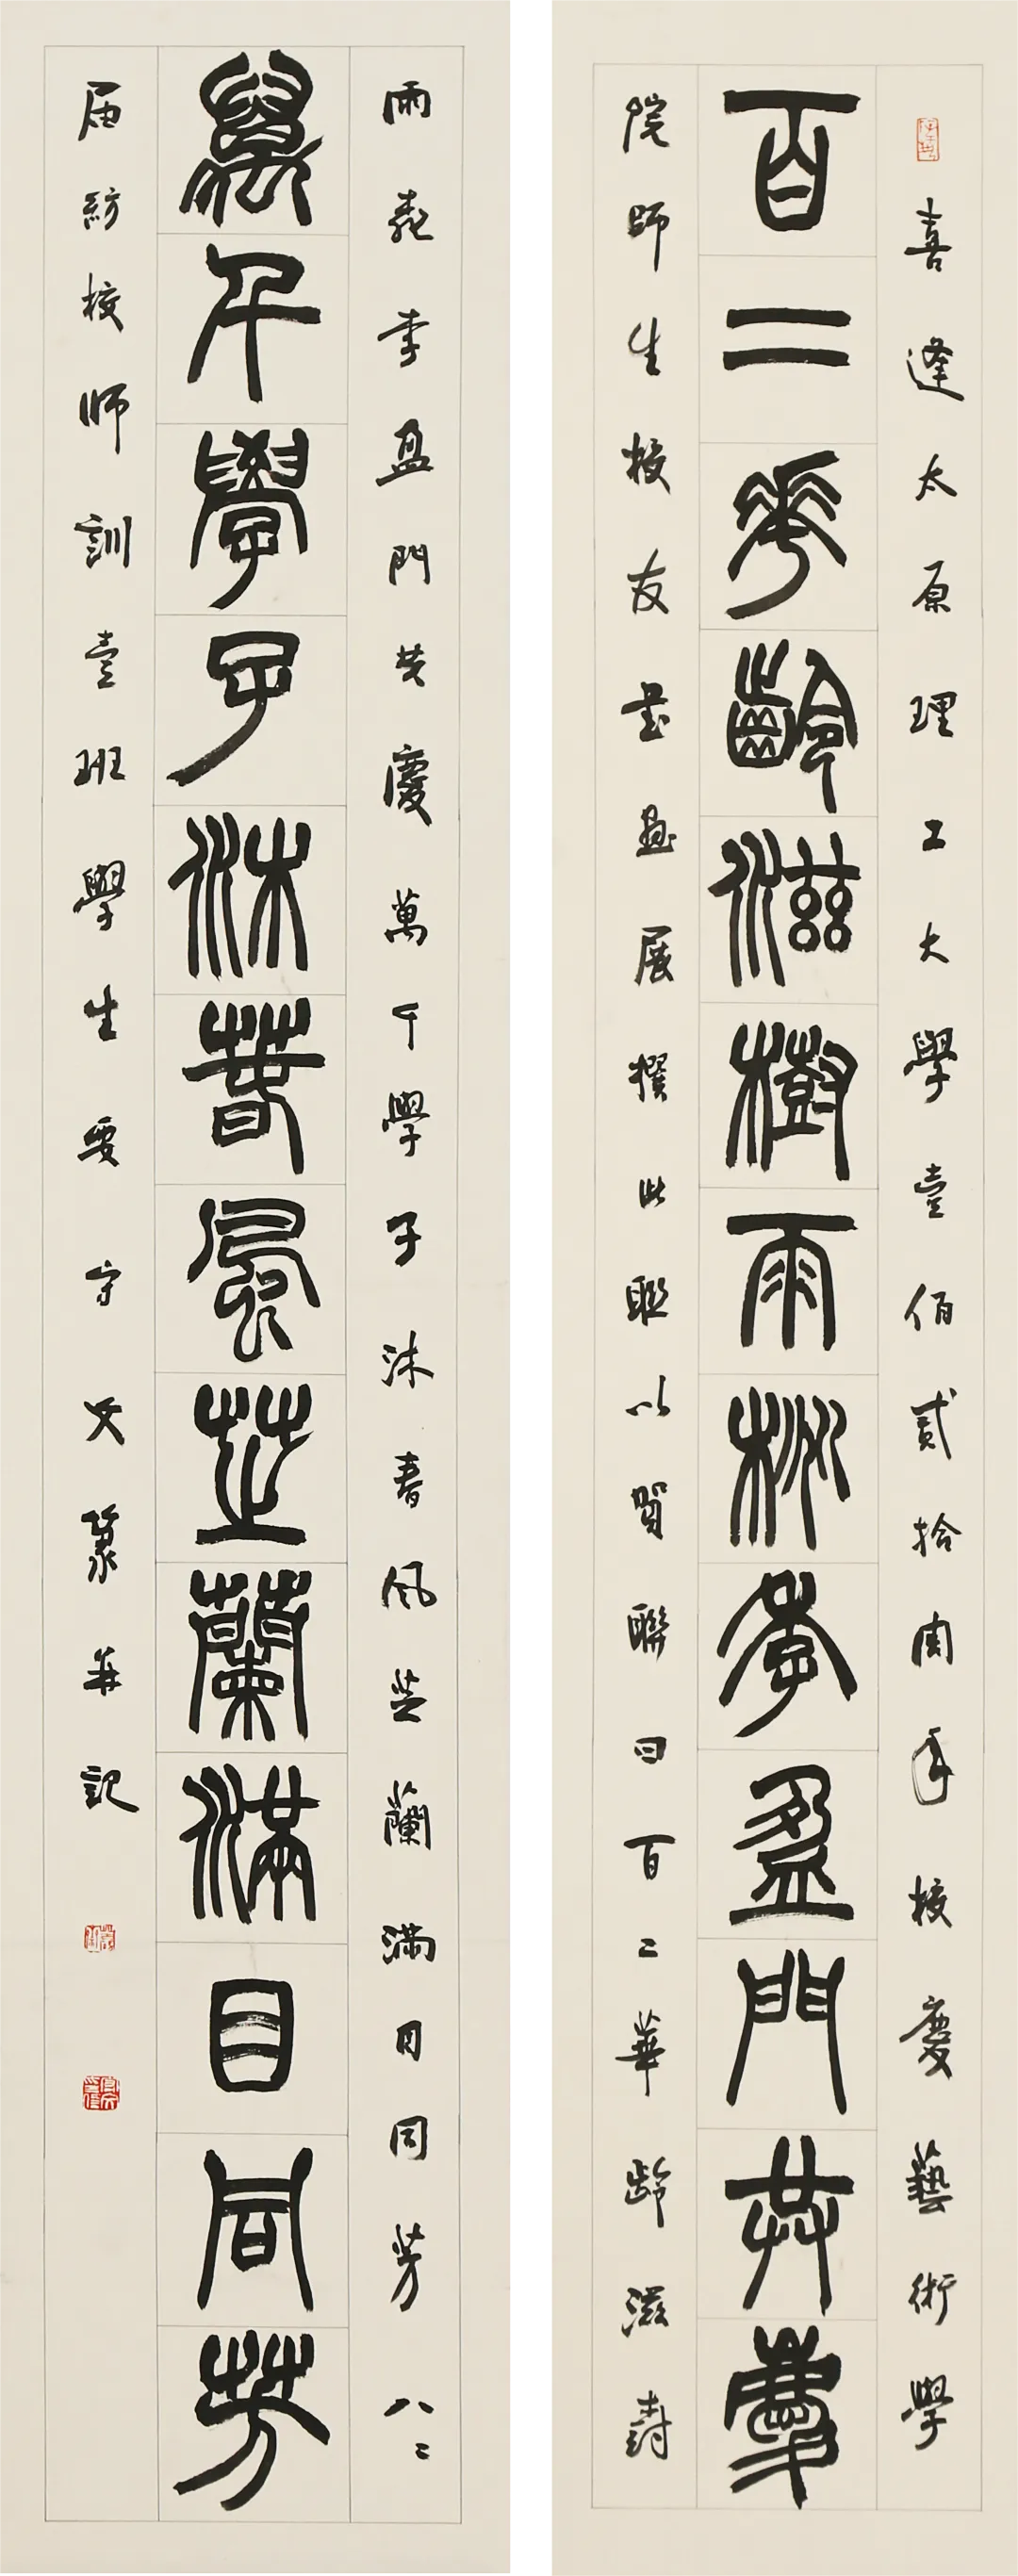 喜逢太原理工大學壹佰貳拾周年校慶藝術學
百二華齡滋樹雨桃李盈門共慶
院師生校友書畫展撰此聯以賀聯曰百二華齡滋尌
雨桃李盈門共慶萬千學子沐春風芝蘭滿目同芳八二
萬千學子沐春風芝蘭滿目同芳
届紡校師訓壹班學生要守文篆并記